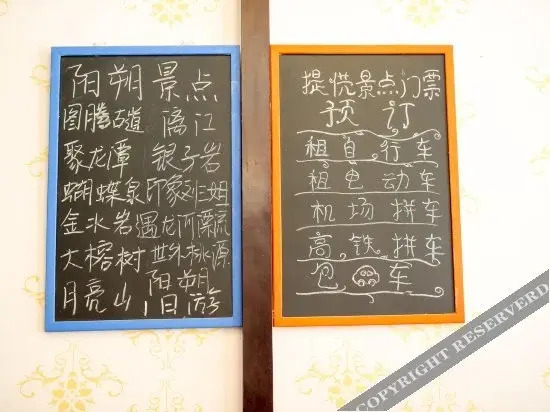 阳朔景点
图腾古道 漓江
聚龙潭 银子岩
蝴蝶泉 印象刘三姐
金水岩 遇龙河漂流
大榕树 世外桃源
月亮山 阳朔1日游
提供景点门票
预订
租自行车
租电动车
机场拼车
高铁拼车
包车
COPYRIGHT RESERVED